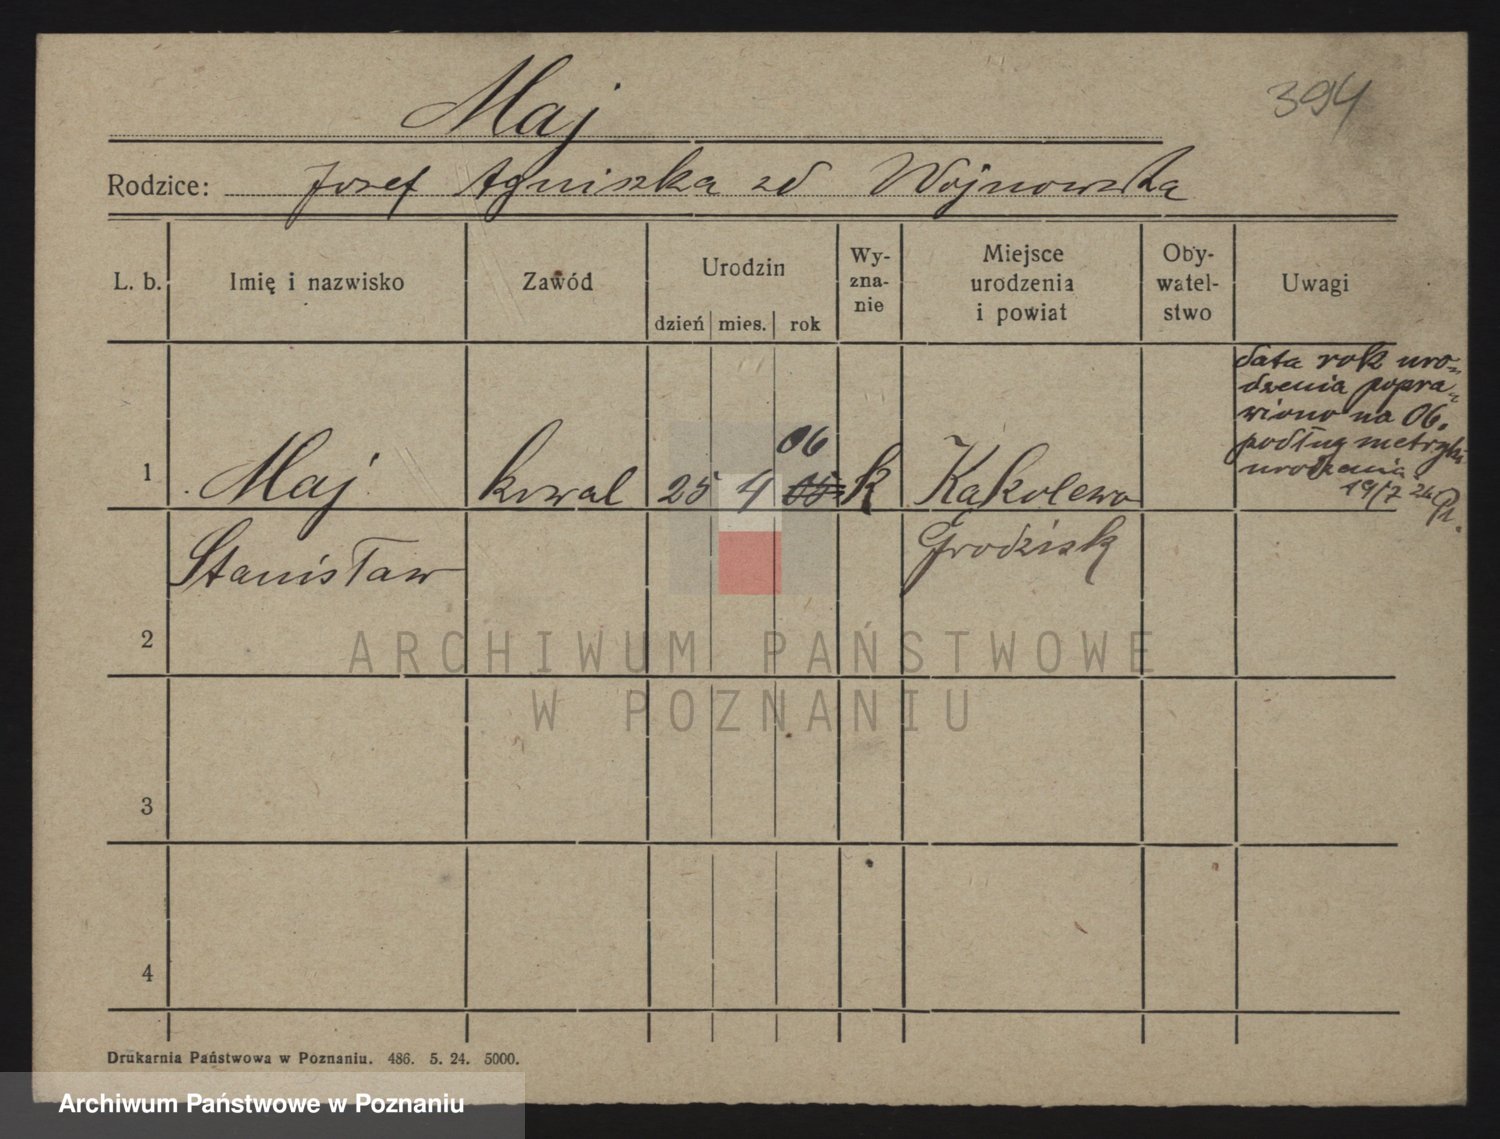 Maj
394
Rodzice: Josef Agniszka zd Wojnowska
L. b.
Imię i nazwisko
Zawód
Urodzin
dzień mies. rok
Wy-
zna-
nie
Miejsce
urodzenia
i powiat
Oby-
watel-
stwo
Uwagi
1
Maj
Stanisław
kowal
25 4 05
06
k
Kąkolewo
Grodzisk
data rok uro-
dzenia popra-
wiono na 06.
podług metryki
urodzenia
19/7 24
2
3
4
Drukarnia Państwowa w Poznaniu. 486. 5. 24. 5000.
ARCHIWUM PAŃSTWOWE
W POZNANIU
Archiwum Państwowe w Poznaniu